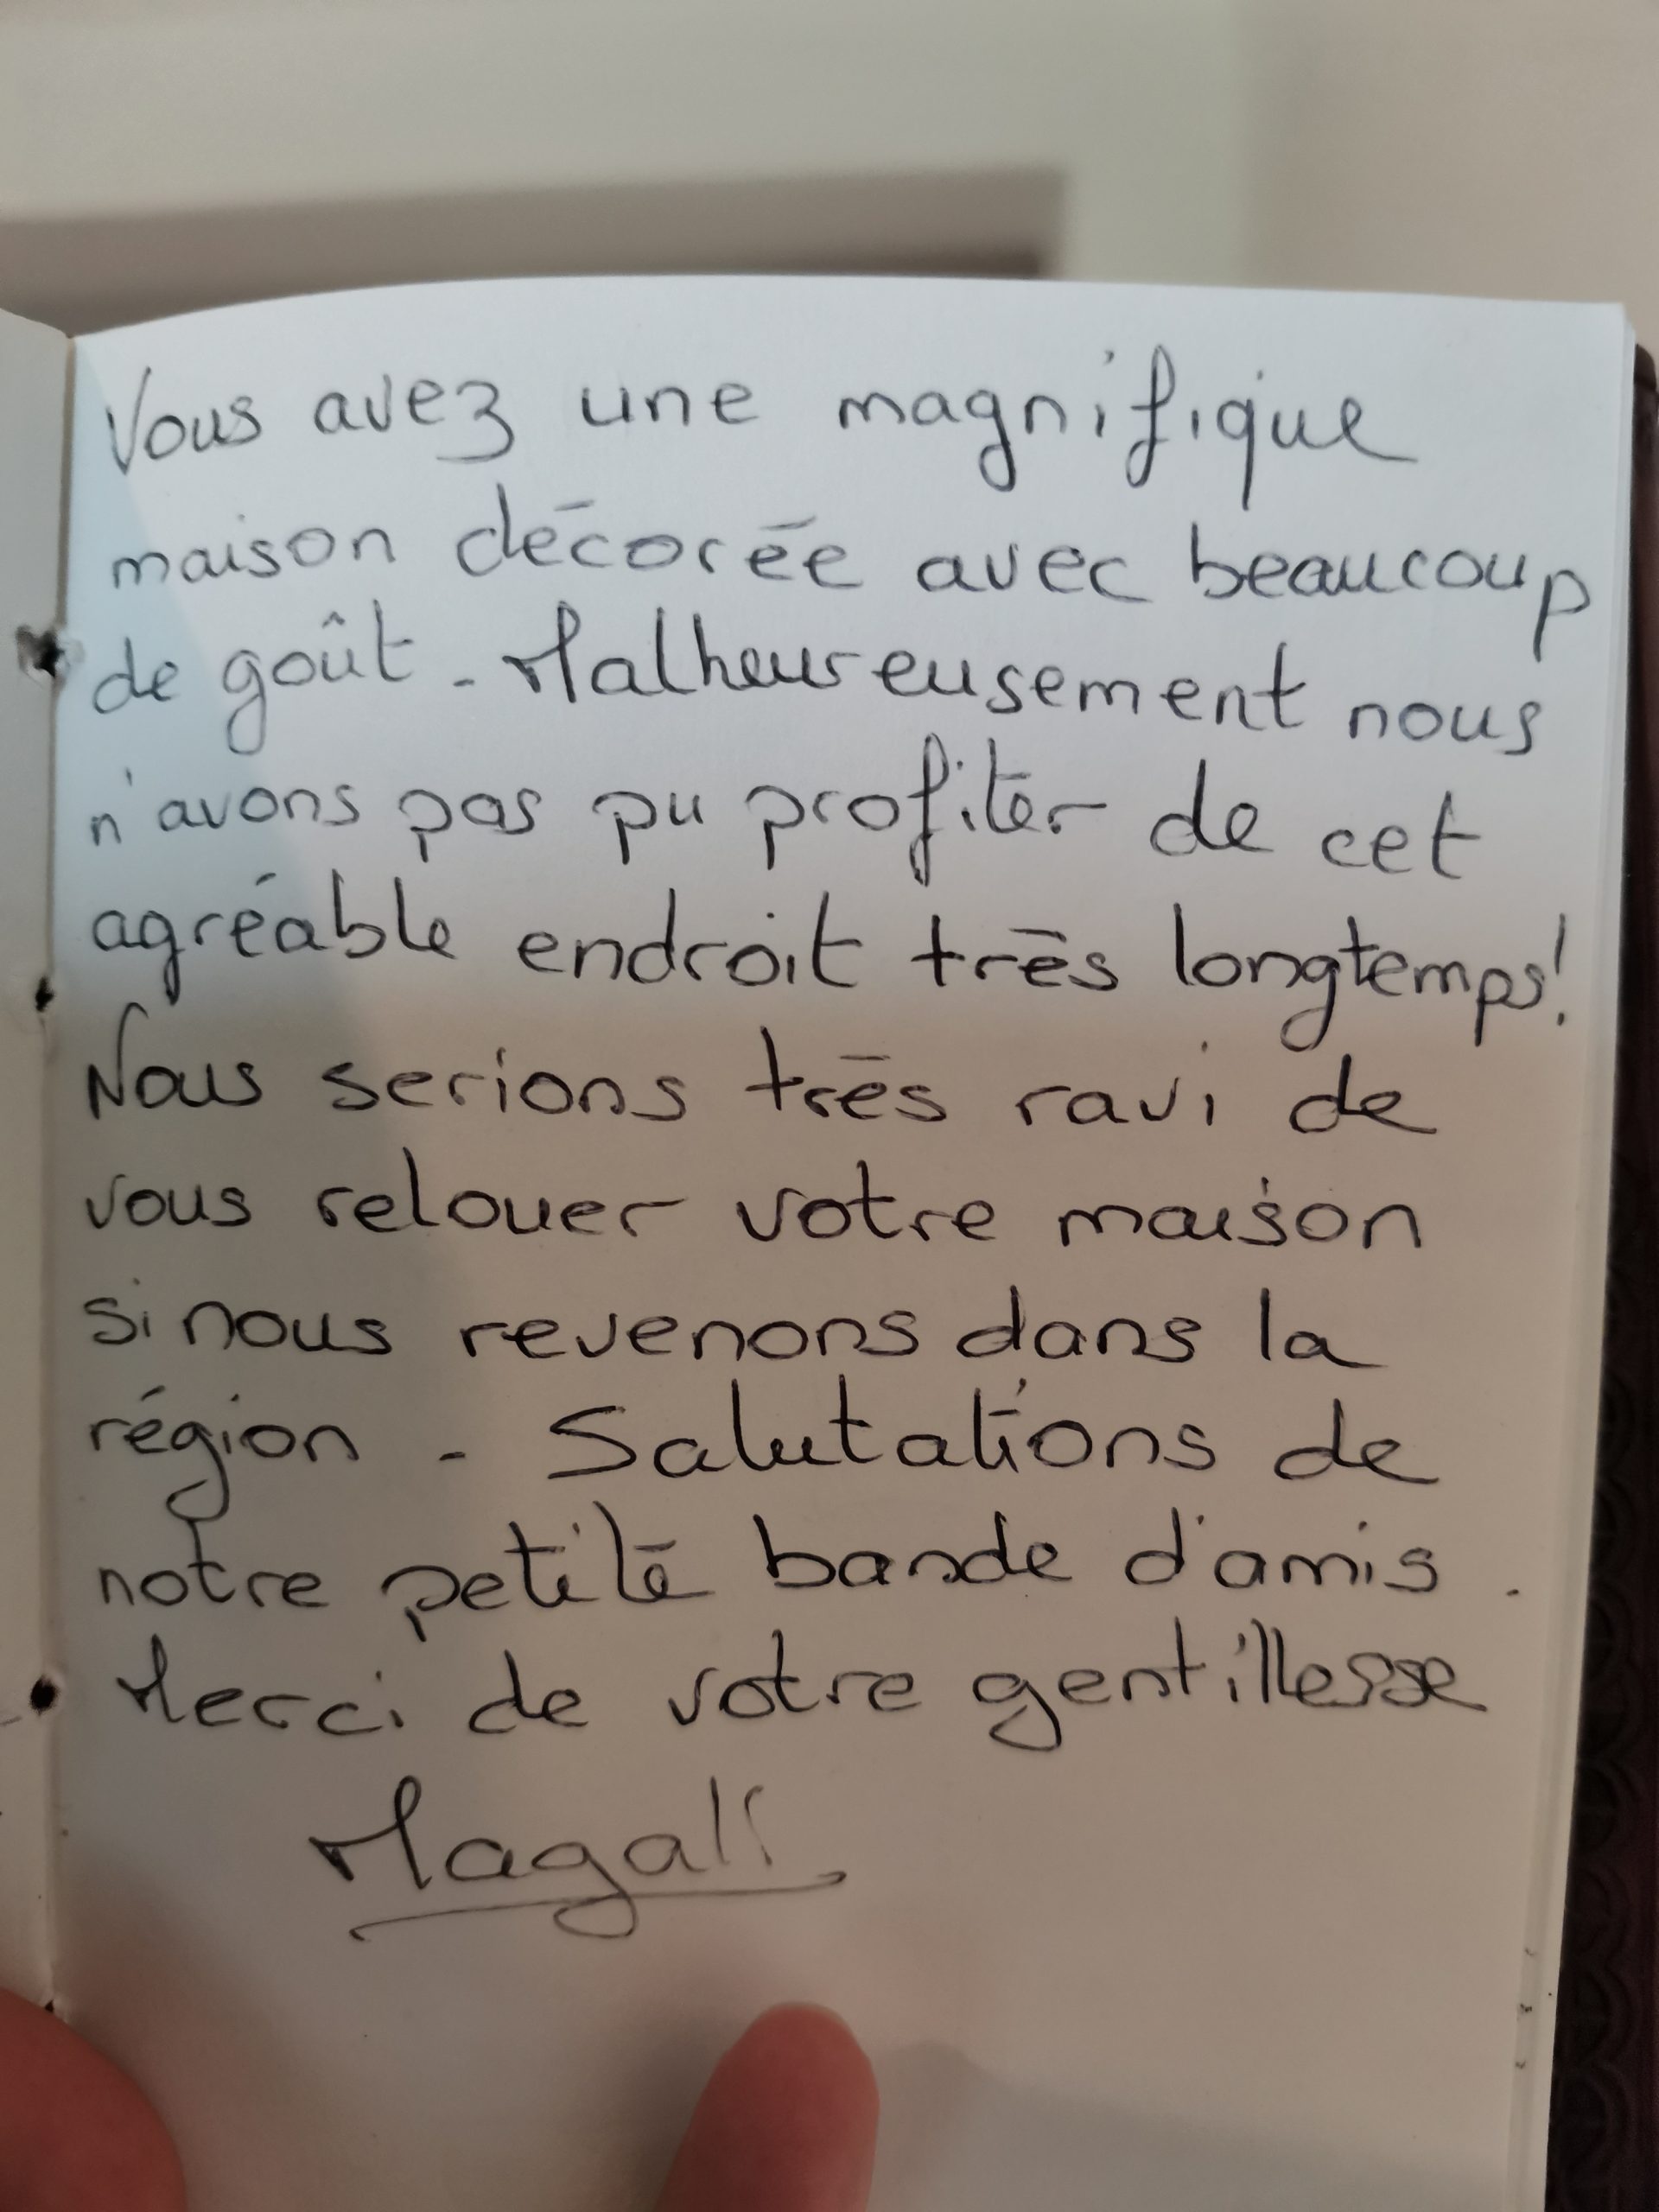 Vous avez une magnifique
maison décorée avec beaucoup
de goût - Malheureusement nous
n'avons pas pu profiter de cet
agréable endroit très longtemps!
Nous serions très ravi de
vous relouer votre maison
si nous revenons dans la
région - Salutations de
notre petite bande d'amis.
Merci de votre gentillesse
Magali